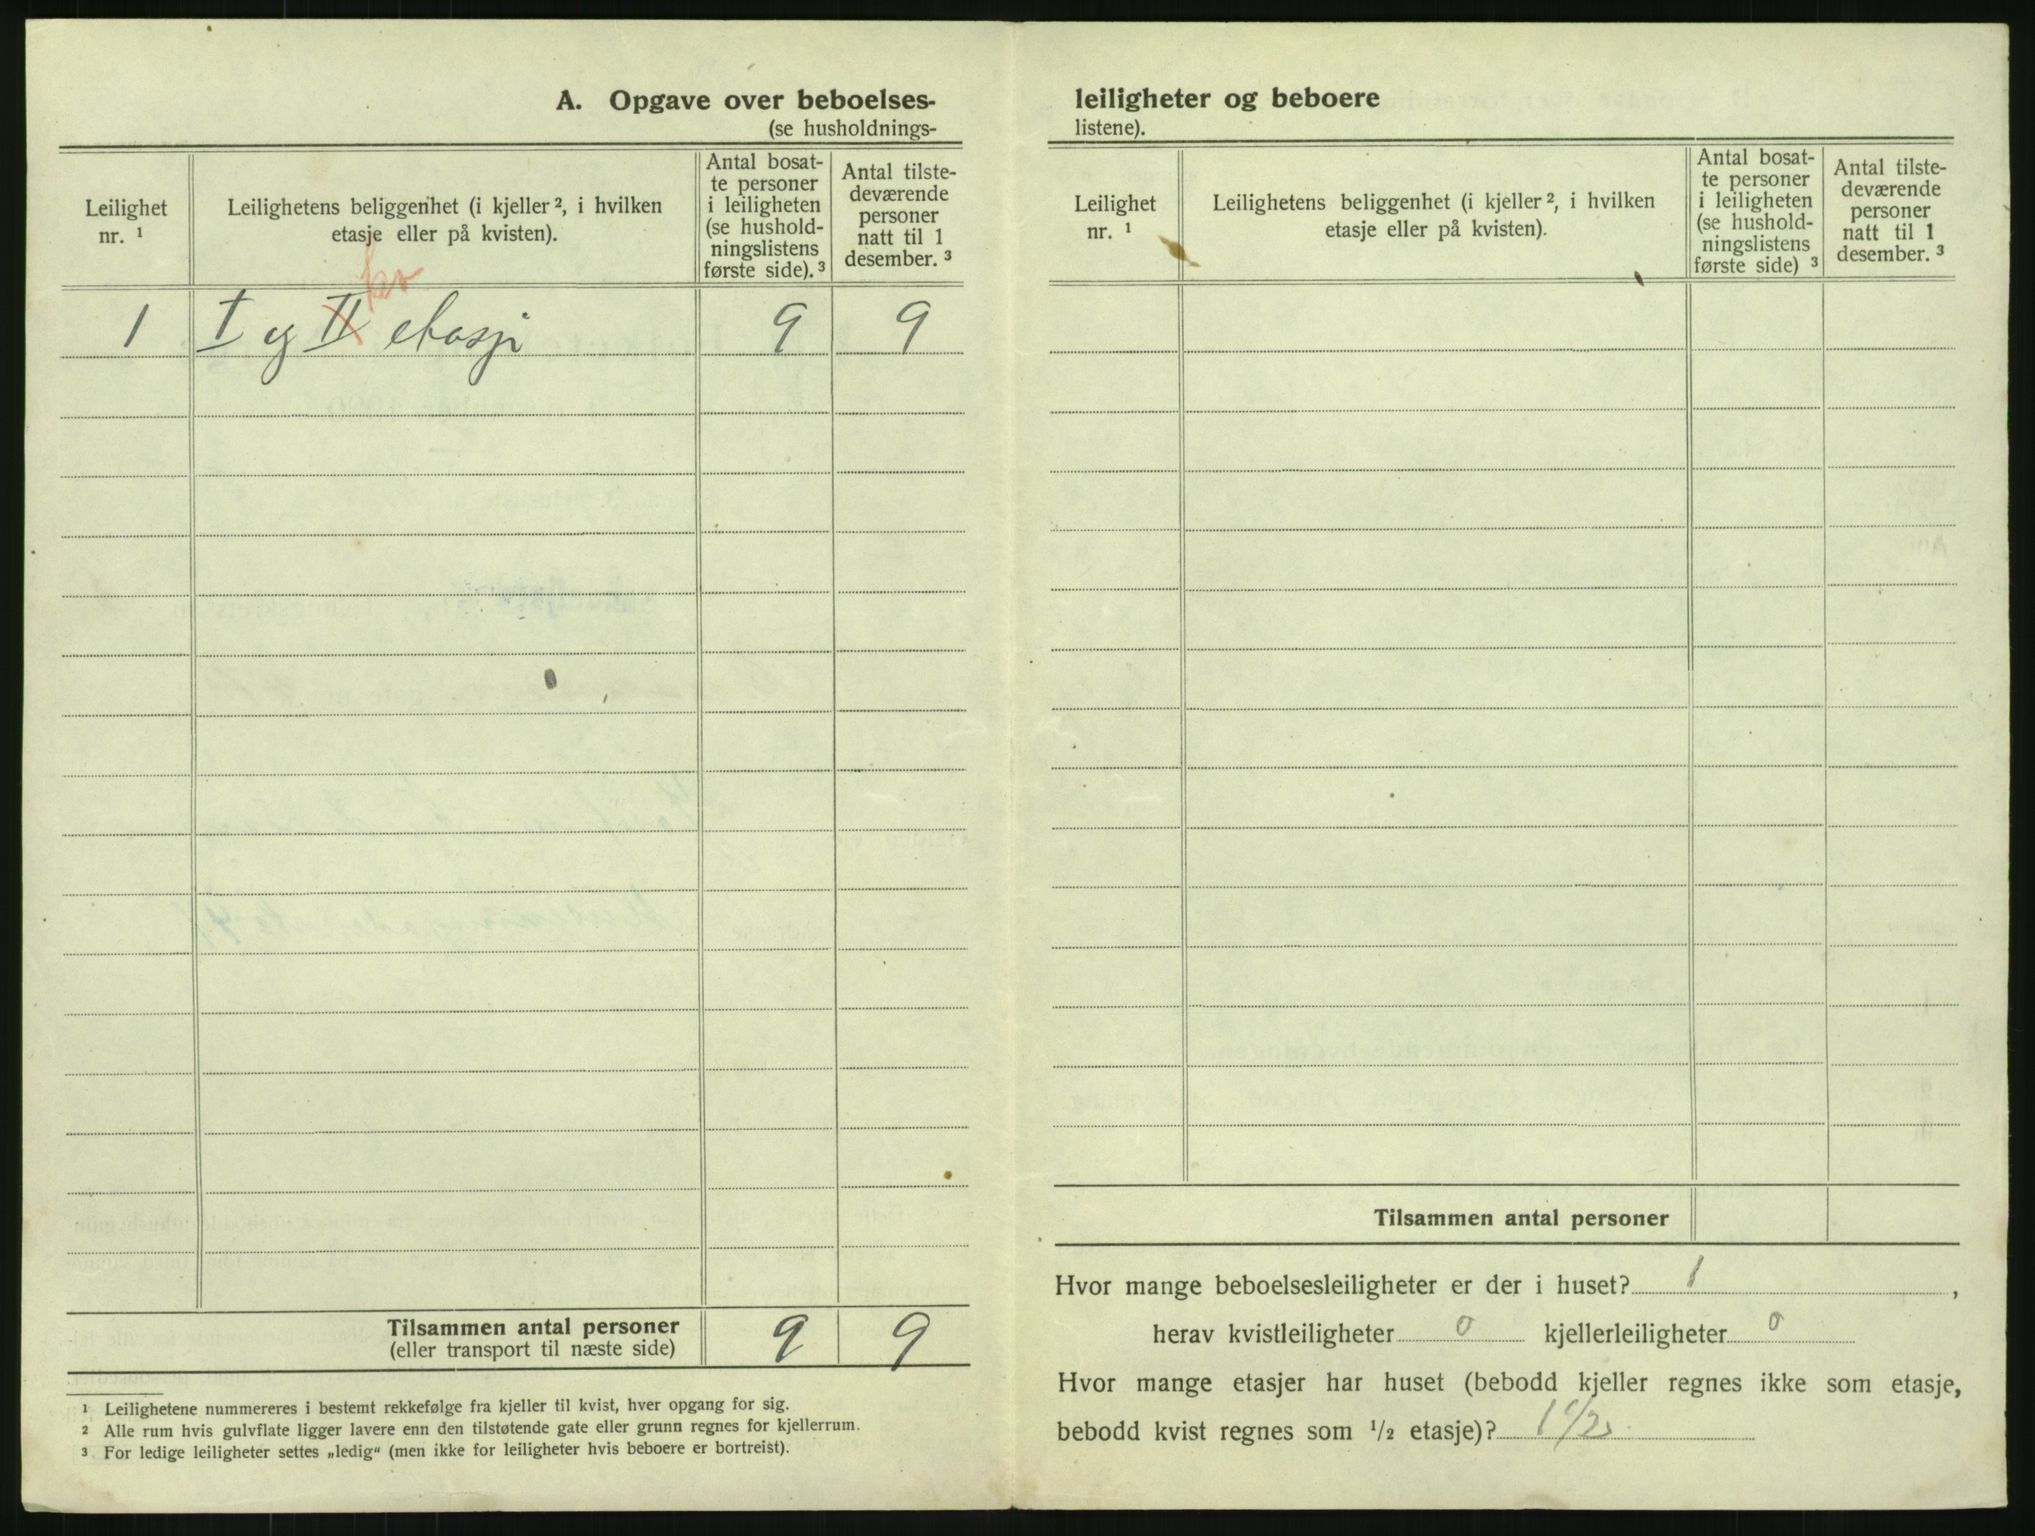 A. Opgave over beboelses-
(se husholdnings-
Leilighet
nr. ¹
Leilighetens beliggenhet (i kjeller ², i hvilken
etasje eller på kvisten).
Antal bosat-
te personer
i leiligheten
(se hushold-
ningslistens
første side). ³
Antal tilste-
deværende
personer
natt til 1
desember. ³
kv
1 I og II etasje 9 9
Tilsammen antal personer 9 9
(eller transport til næste side)
¹ Leilighetene nummereres i bestemt rekkefølge fra kjeller til kvist, hver opgang for sig.
² Alle rum hvis gulvflate ligger lavere enn den tilstøtende gate eller grunn regnes for kjellerrum.
³ For ledige leiligheter settes „ledig“ (men ikke for leiligheter hvis beboere er bortreist).
leiligheter og beboere
listene).
Leilighet
nr. ¹
Leilighetens beliggenhet (i kjeller ², i hvilken
etasje eller på kvisten).
Antal bosat-
te personer
i leiligheten
(se hushold-
ningslistens
første side) ³
Antal tilste-
deværende
personer
natt til 1
desember. ³
Tilsammen antal personer
Hvor mange beboelsesleiligheter er der i huset? 1,
herav kvistleiligheter 0 kjellerleiligheter 0
Hvor mange etasjer har huset (bebodd kjeller regnes ikke som etasje,
bebodd kvist regnes som ¹/₂ etasje)? 1 1/2